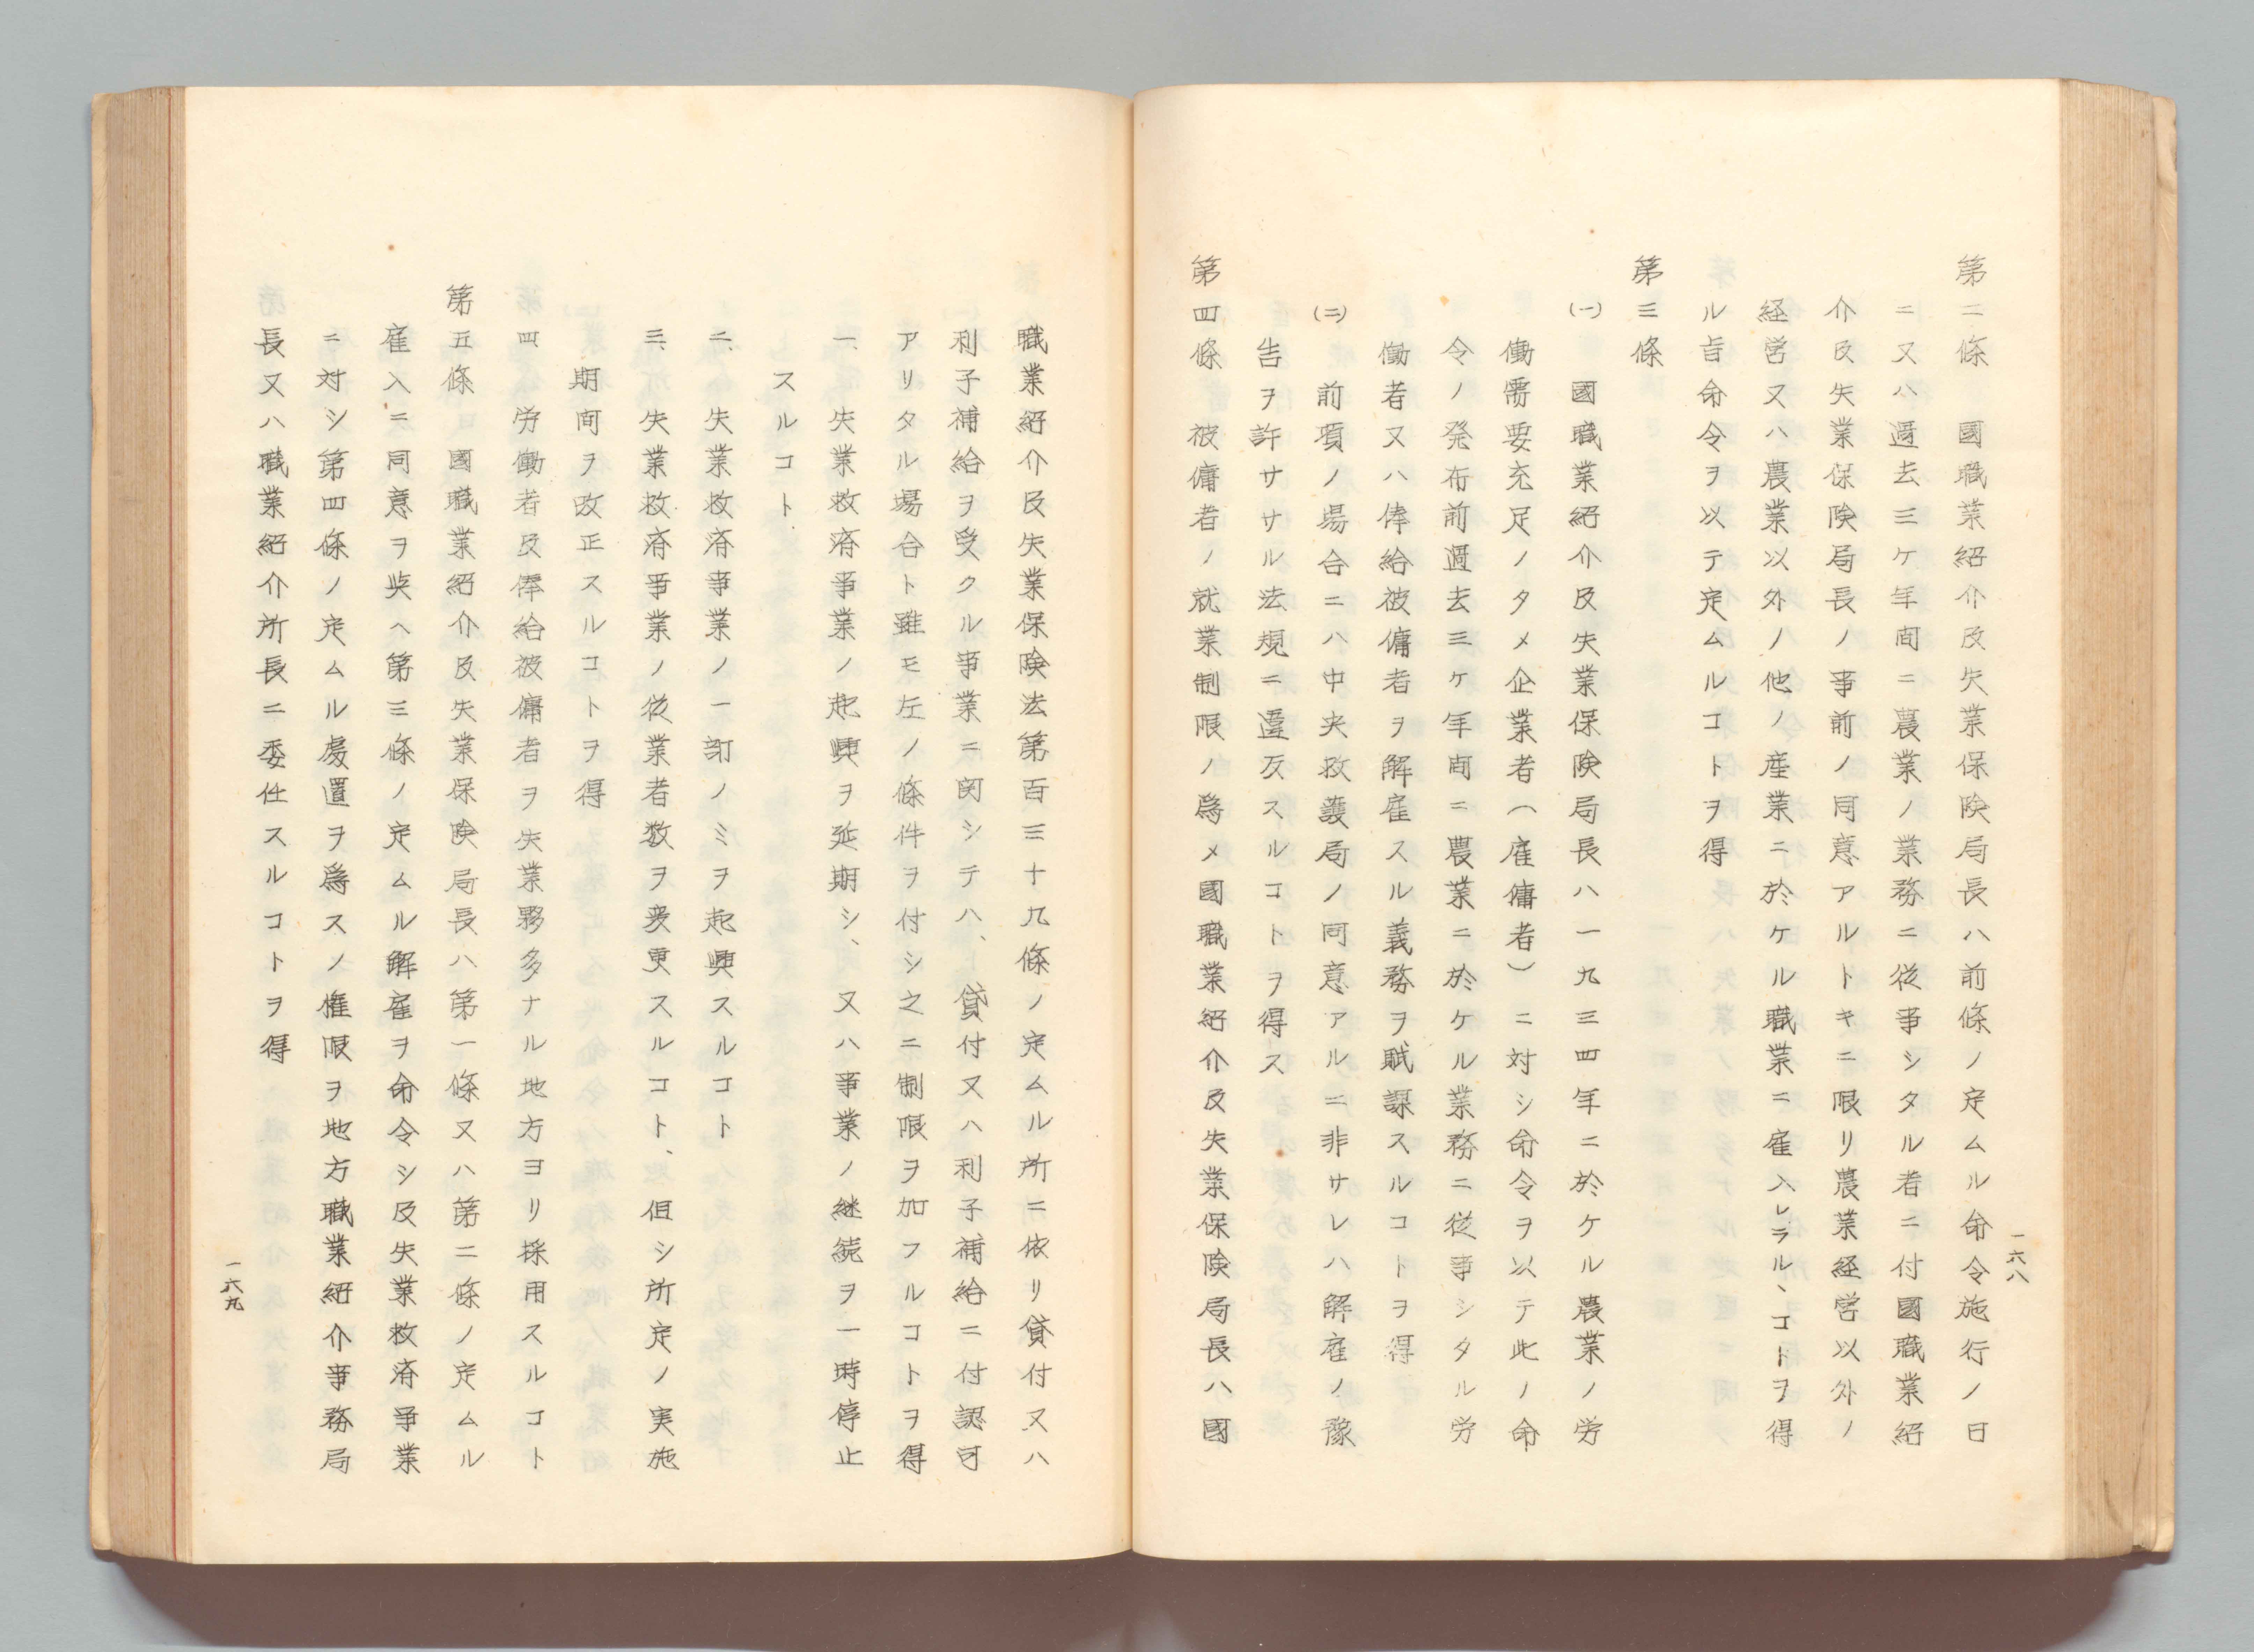 第二條　國職業紹介及失業保険局長ハ前條ノ定ムル命令施行ノ日
ニ又ハ過去三ケ年間ニ農業ノ業務ニ従事シタル者ニ付國職業紹
介及失業保険局長ノ事前ノ同意アルトキニ限リ農業経営以外ノ
経営又ハ農業以外ノ他ノ産業ニ於ケル職業ニ雇入レラルヽコトヲ得
ル旨命令ヲ以テ定ムルコトヲ得
第三條
(一)　國職業紹介及失業保険局長ハ一九三四年ニ於ケル農業ノ労
働需要充足ノタメ企業者（雇傭者）ニ対シ命令ヲ以テ此ノ命
令ノ発布前過去三ケ年間ニ農業ニ於ケル業務ニ従事シタル労
働者又ハ俸給被傭者ヲ解雇スル義務ヲ賦課スルコトヲ得
(二)　前項ノ場合ニハ中央救護局ノ同意アルニ非サレハ解雇ノ豫
告ヲ許ササル法規ニ違反スルコトヲ得ス
第四條　被傭者ノ就業制限ノ為メ國職業紹介及失業保険局長ハ國
一六八
職業紹介及失業保険法第百三十九條ノ定ムル所ニ依リ貸付又ハ
利子補給ヲ受クル事業ニ関シテハ、貸付又ハ利子補給ニ付認可
アリタル場合ト雖モ左ノ條件ヲ付シ之ニ制限ヲ加フルコトヲ得
一、失業救済事業ノ起興ヲ延期シ、又ハ事業ノ継続ヲ一時停止
スルコト
二、失業救済事業ノ一部ノミヲ起興スルコト
三、失業救済事業ノ従業者数ヲ変更スルコト、但シ所定ノ実施
期間ヲ改正スルコトヲ得
四、労働者及俸給被傭者ヲ失業夥多ナル地方ヨリ採用スルコト
第五條　國職業紹介及失業保険局長ハ第一條又ハ第二條ノ定ムル
雇入ニ同意ヲ與ヘ第三條ノ定ムル解雇ヲ命令シ及失業救済事業
ニ対シ第四條ノ定ムル處置ヲ為スノ権限ヲ地方職業紹介事務局
長又ハ職業紹介所長ニ委任スルコトヲ得
一六九